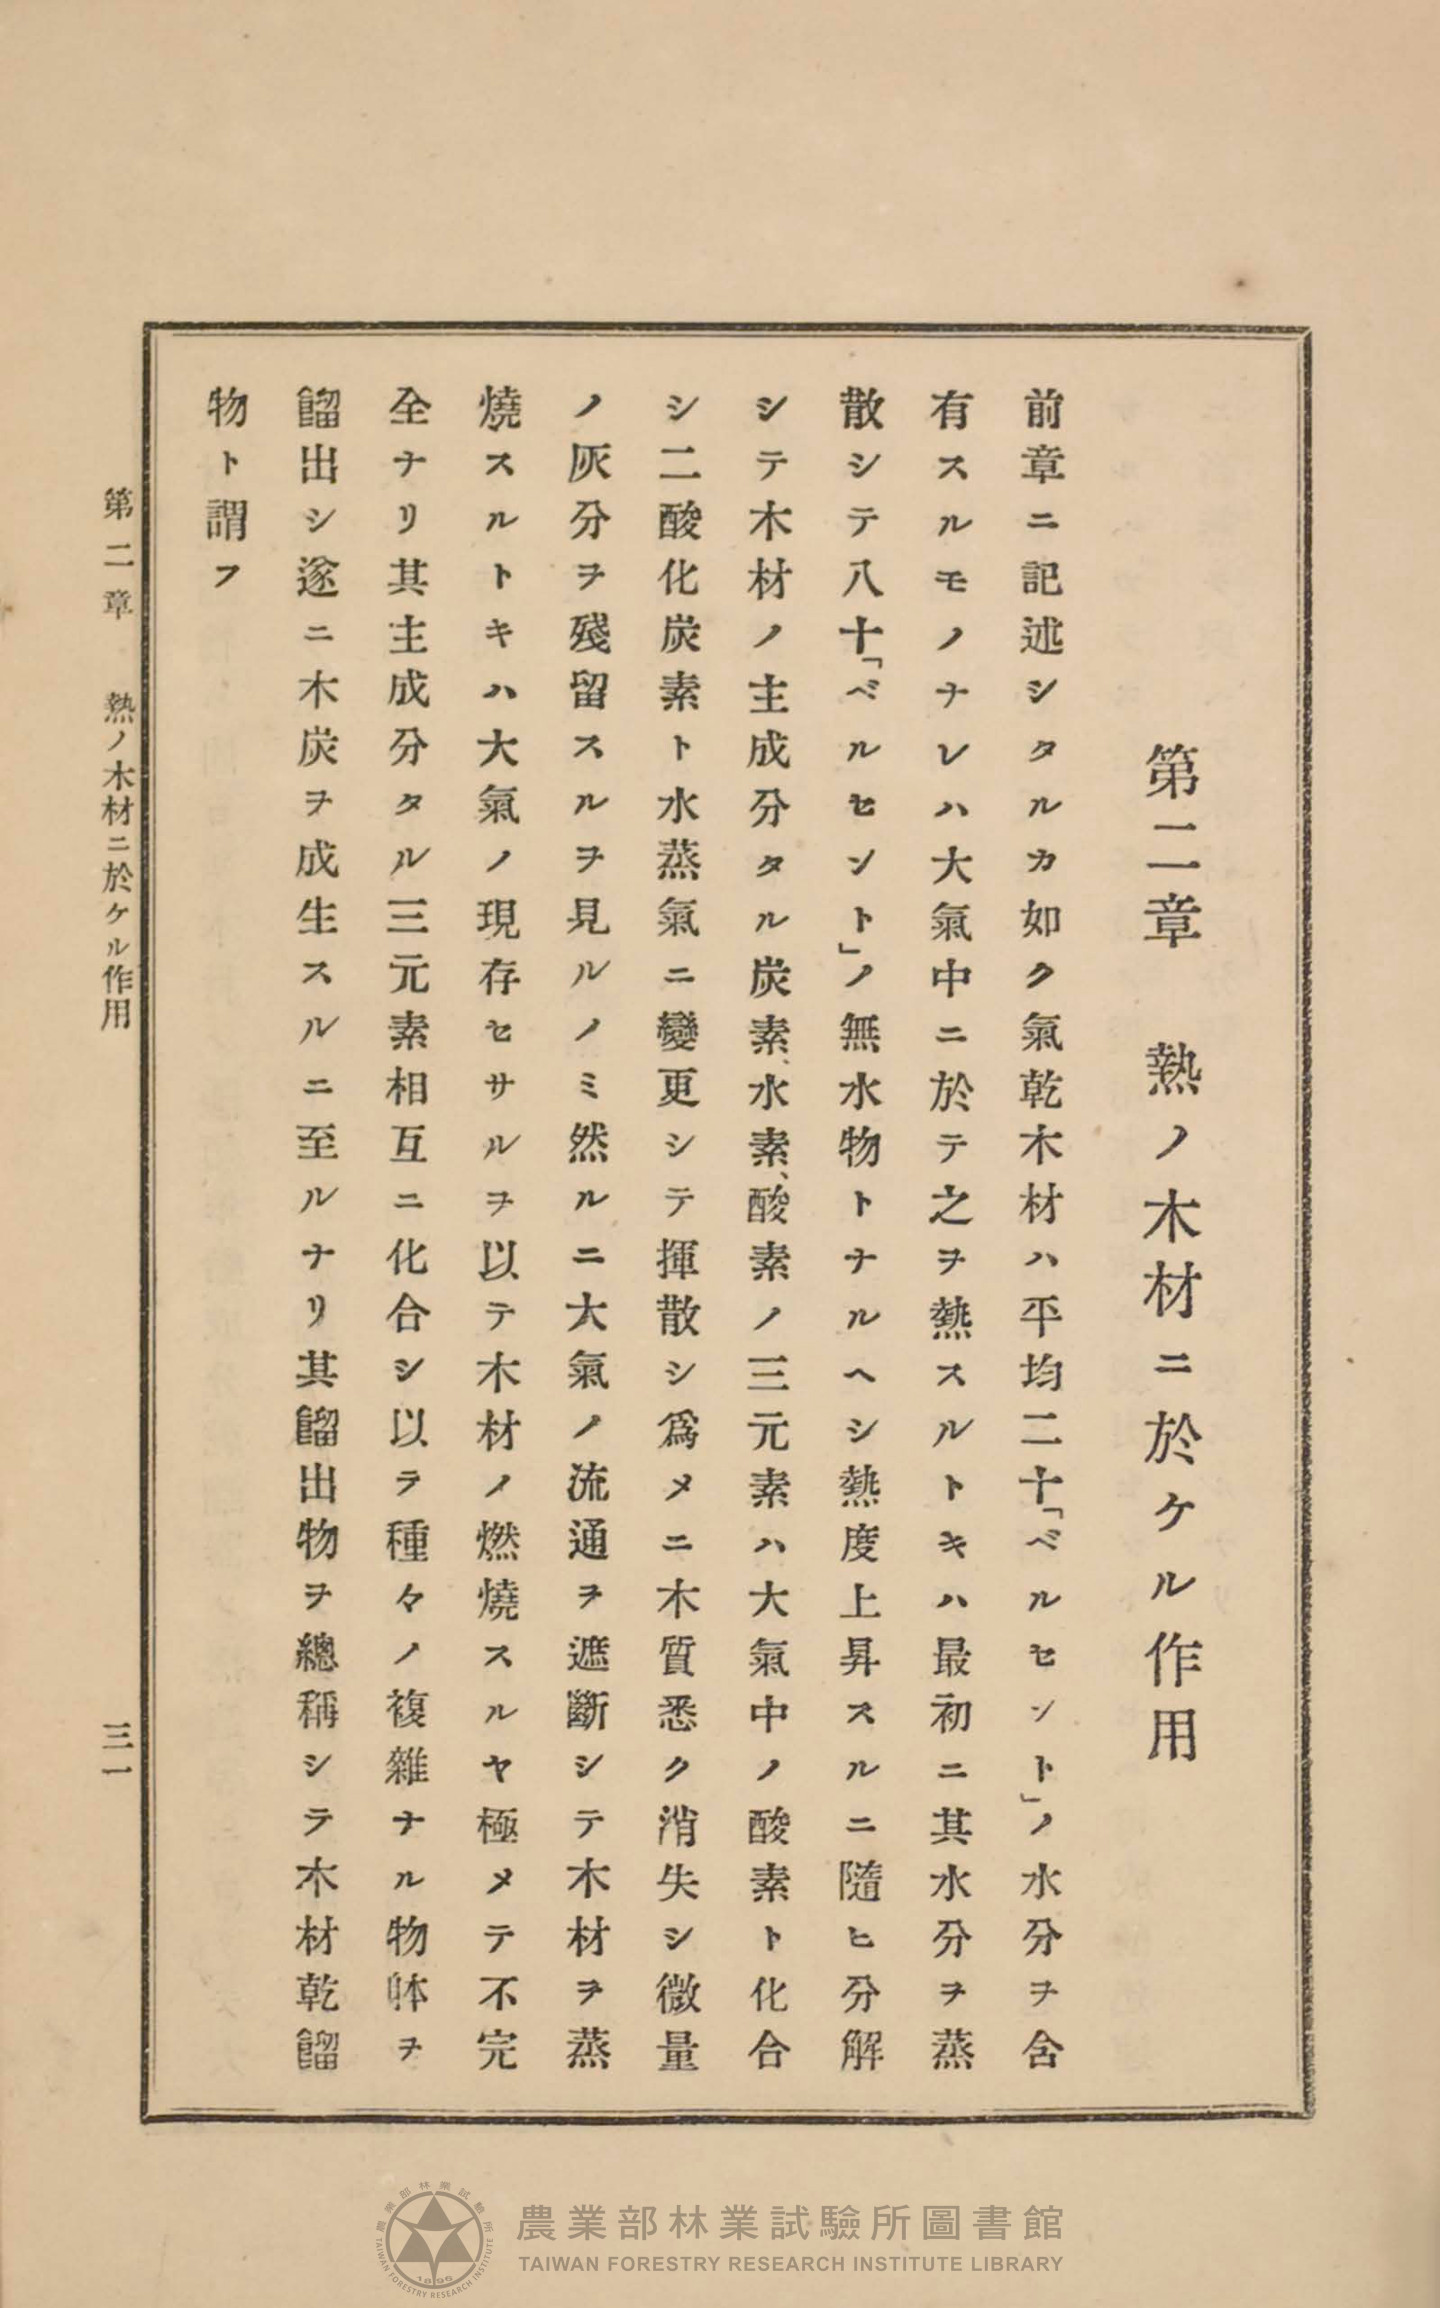 第二章　熱ノ木材ニ於ケル作用
前章ニ記述シタルカ如ク氣乾木材ハ平均二十「ベルセント」ノ水分ヲ含
有スルモノナレハ大氣中ニ於テ之ヲ熱スルトキハ最初ニ其水分ヲ蒸
散シテ八十「ベルセント」ノ無水物トナルヘシ熱度上昇スルニ隨ヒ分解
シテ木材ノ主成分タル炭素、水素、酸素ノ三元素ハ大氣中ノ酸素ト化合
シ二酸化炭素ト水蒸氣ニ變更シテ揮散シ爲メニ木質悉ク消失シ微量
ノ灰分ヲ殘留スルヲ見ルノミ然ルニ大氣ノ流通ヲ遮斷シテ木材ヲ蒸
燒スルトキハ大氣ノ現存セサルヲ以テ木材ノ燃燒スルヤ極メテ不完
全ナリ其主成分タル三元素相互ニ化合シ以テ種々ノ複雜ナル物体ヲ
餾出シ遂ニ木炭ヲ成生スルニ至ルナリ其餾出物ヲ總稱シテ木材乾餾
物ト謂フ
第二章　熱ノ木材ニ於ケル作用
三一
農業部林業試驗所圖書館
TAIWAN FORESTRY RESEARCH INSTITUTE LIBRARY
農業部林業試驗所
TAIWAN FORESTRY RESEARCH INSTITUTE
1896